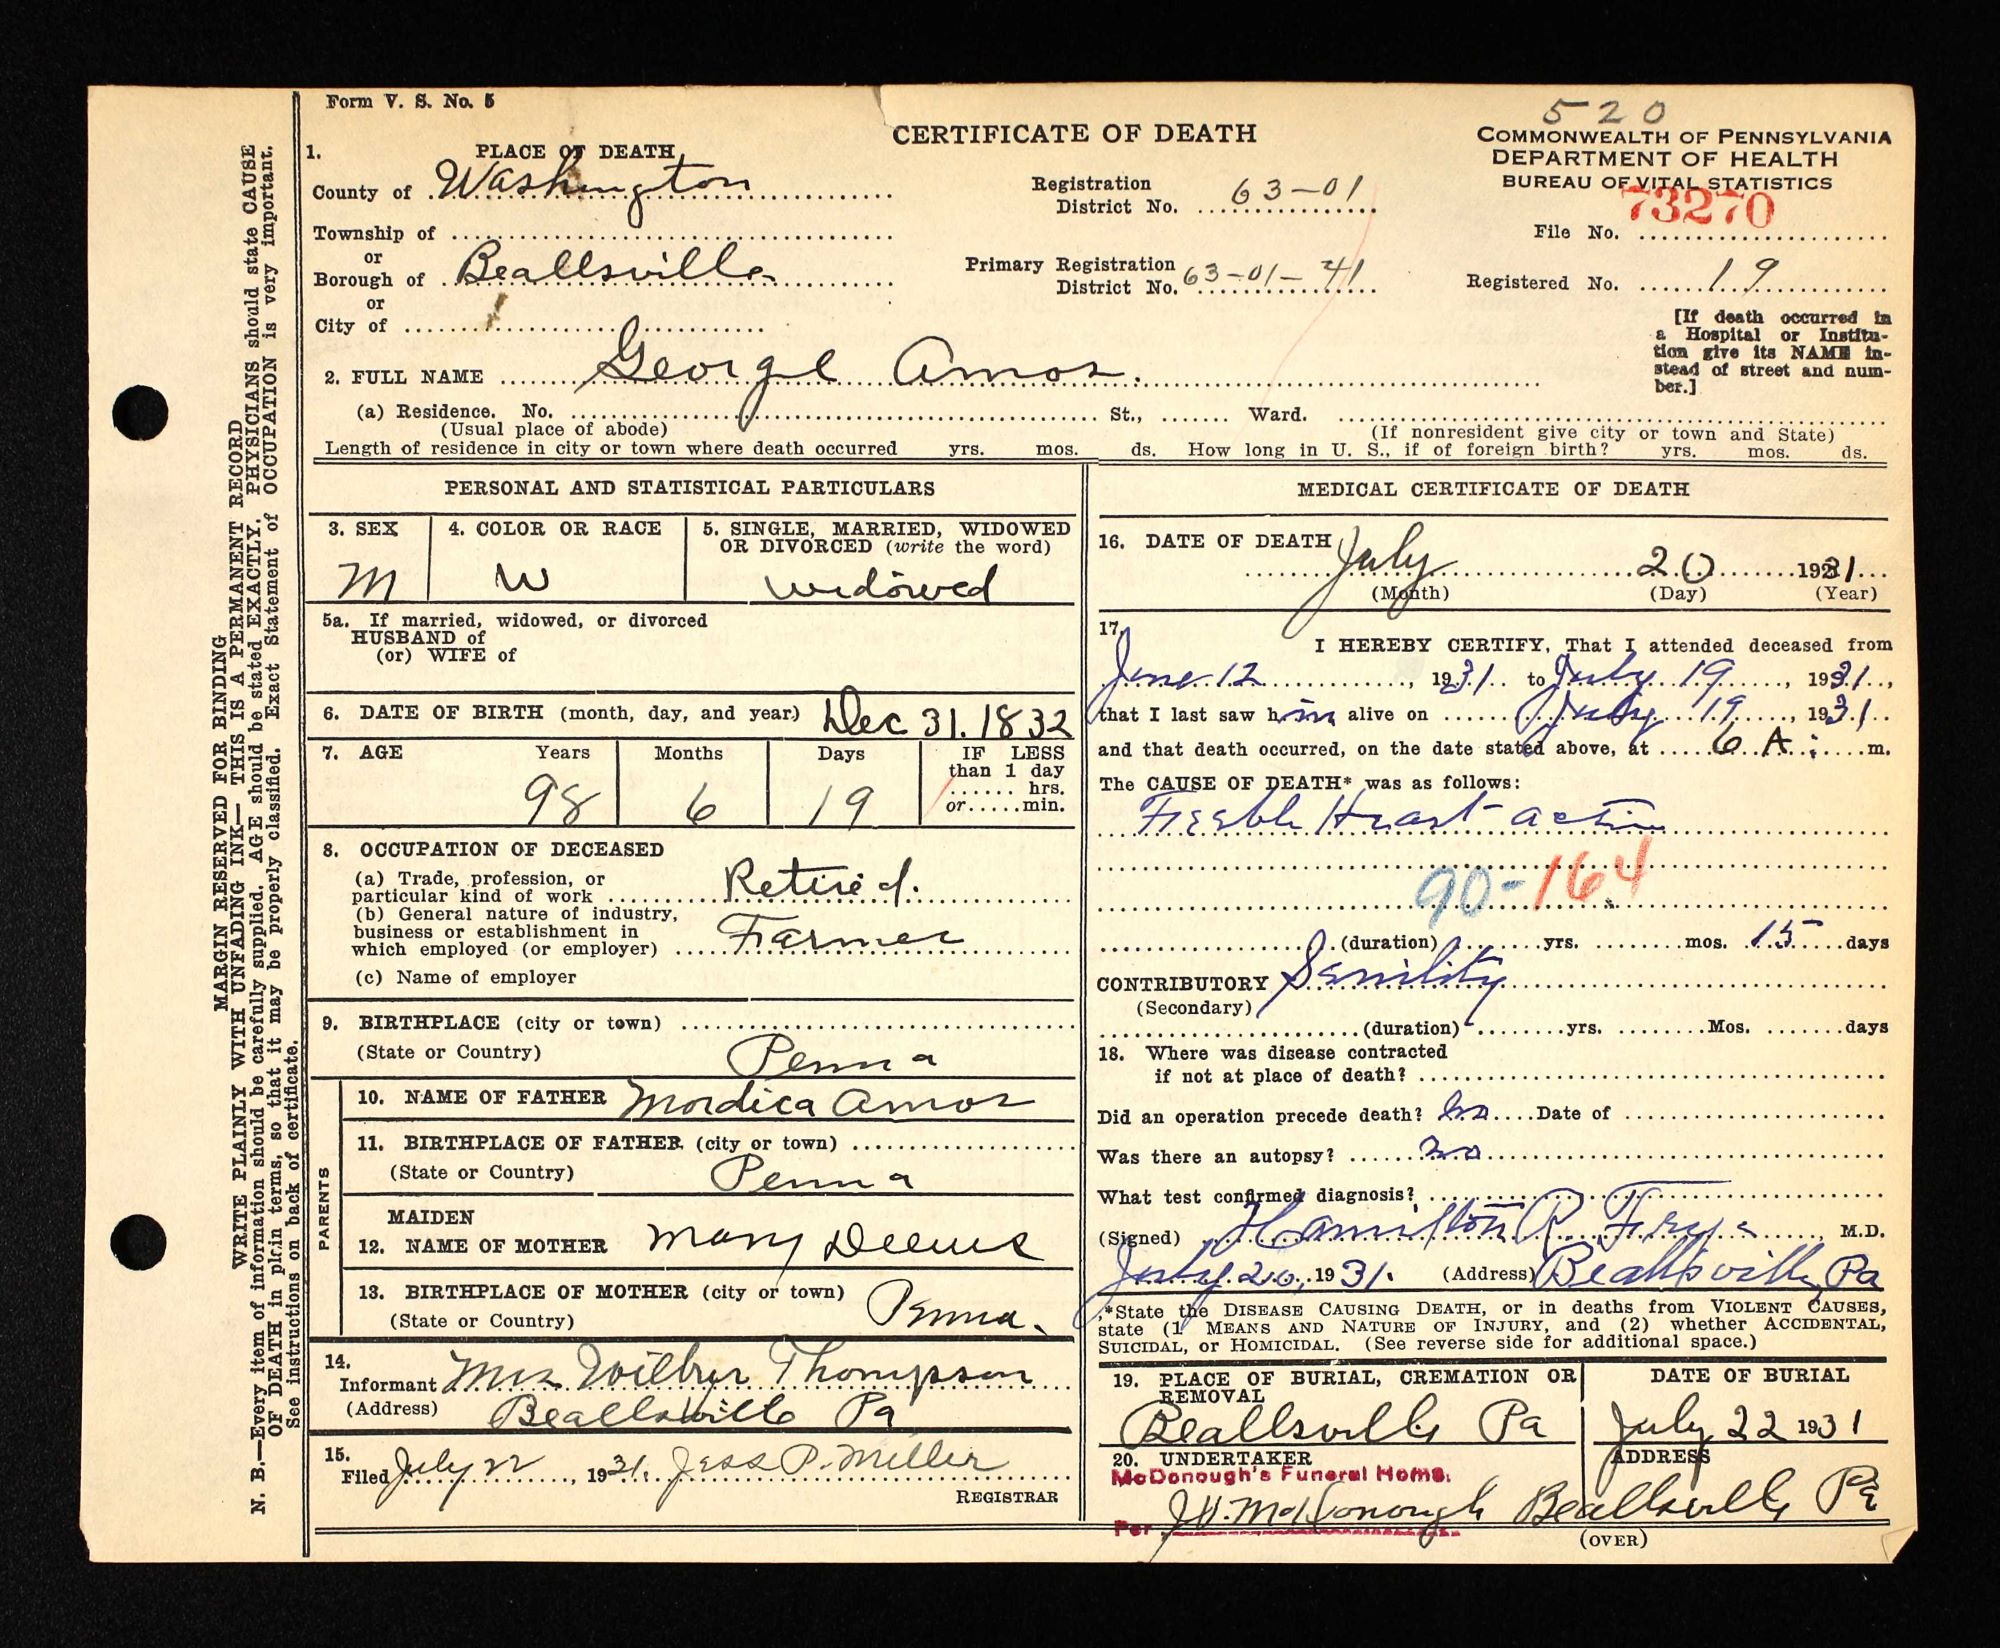 Form V. S. No. 5
520
CERTIFICATE OF DEATH
COMMONWEALTH OF PENNSYLVANIA
DEPARTMENT OF HEALTH
BUREAU OF VITAL STATISTICS
73270
File No.
Registered No. 19
[If death occurred in
a Hospital or Institu-
tion give its NAME in-
stead of street and num-
ber.]
1. PLACE OF DEATH
County of Washington
Registration
District No. 63-01
Township of
or
Borough of Beallsville
Primary Registration
District No. 63-01-41
or
City of
2. FULL NAME George Amos.
(a) Residence. No. St., Ward.
(Usual place of abode) (If nonresident give city or town and State)
Length of residence in city or town where death occurred yrs. mos. ds. How long in U. S., if of foreign birth? yrs. mos. ds.
PERSONAL AND STATISTICAL PARTICULARS
3. SEX
M
4. COLOR OR RACE
W
5. SINGLE, MARRIED, WIDOWED
OR DIVORCED (write the word)
widowed
5a. If married, widowed, or divorced
HUSBAND of
(or) WIFE of
6. DATE OF BIRTH (month, day, and year) Dec 31. 1832
7. AGE Years Months Days IF LESS
than 1 day
hrs.
or.....min.
98 6 19
8. OCCUPATION OF DECEASED
(a) Trade, profession, or
particular kind of work Retired.
(b) General nature of industry,
business or establishment in
which employed (or employer) Farmer
(c) Name of employer
9. BIRTHPLACE (city or town)
(State or Country) Penna
PARENTS
10. NAME OF FATHER Mordica Amos
11. BIRTHPLACE OF FATHER (city or town)
(State or Country) Penna
MAIDEN
12. NAME OF MOTHER Mary Deems
13. BIRTHPLACE OF MOTHER (city or town)
(State or Country) Penna.
14.
Informant Mrs Wilbur Thompson
(Address) Beallsville Pa
15.
Filed July 22, 1931. Jess P. Miller
REGISTRAR
MEDICAL CERTIFICATE OF DEATH
16. DATE OF DEATH July 20 1931
(Month) (Day) (Year)
17.
I HEREBY CERTIFY, That I attended deceased from
June 12, 1931 to July 19, 1931,
that I last saw him alive on July 19, 1931
and that death occurred, on the date stated above, at 6 A. m.
The CAUSE OF DEATH* was as follows:
Feeble Heart action
90-164
(duration) yrs. mos. 15 days
CONTRIBUTORY Senility
(Secondary)
(duration) yrs. Mos. days
18. Where was disease contracted
if not at place of death?
Did an operation precede death? no Date of
Was there an autopsy? no
What test confirmed diagnosis?
(Signed) Hamilton R. Frye, M.D.
July 20, 1931. (Address) Beallsville, Pa
*State the DISEASE CAUSING DEATH, or in deaths from VIOLENT CAUSES,
state (1 MEANS AND NATURE OF INJURY, and (2) whether ACCIDENTAL,
SUICIDAL, or HOMICIDAL. (See reverse side for additional space.)
19. PLACE OF BURIAL, CREMATION OR
REMOVAL
Beallsville Pa
DATE OF BURIAL
July 22 1931
20. UNDERTAKER
McDonough's Funeral Home.
Per J.V. McDonough
ADDRESS
Beallsville Pa
(OVER)
MARGIN RESERVED FOR BINDING
WRITE PLAINLY WITH UNFADING INK— THIS IS A PERMANENT RECORD
N. B.—Every item of information should be carefully supplied. AGE should be stated EXACTLY. PHYSICIANS should state CAUSE
OF DEATH in plain terms, so that it may be properly classified. Exact Statement of OCCUPATION is very important.
See instructions on back of certificate.